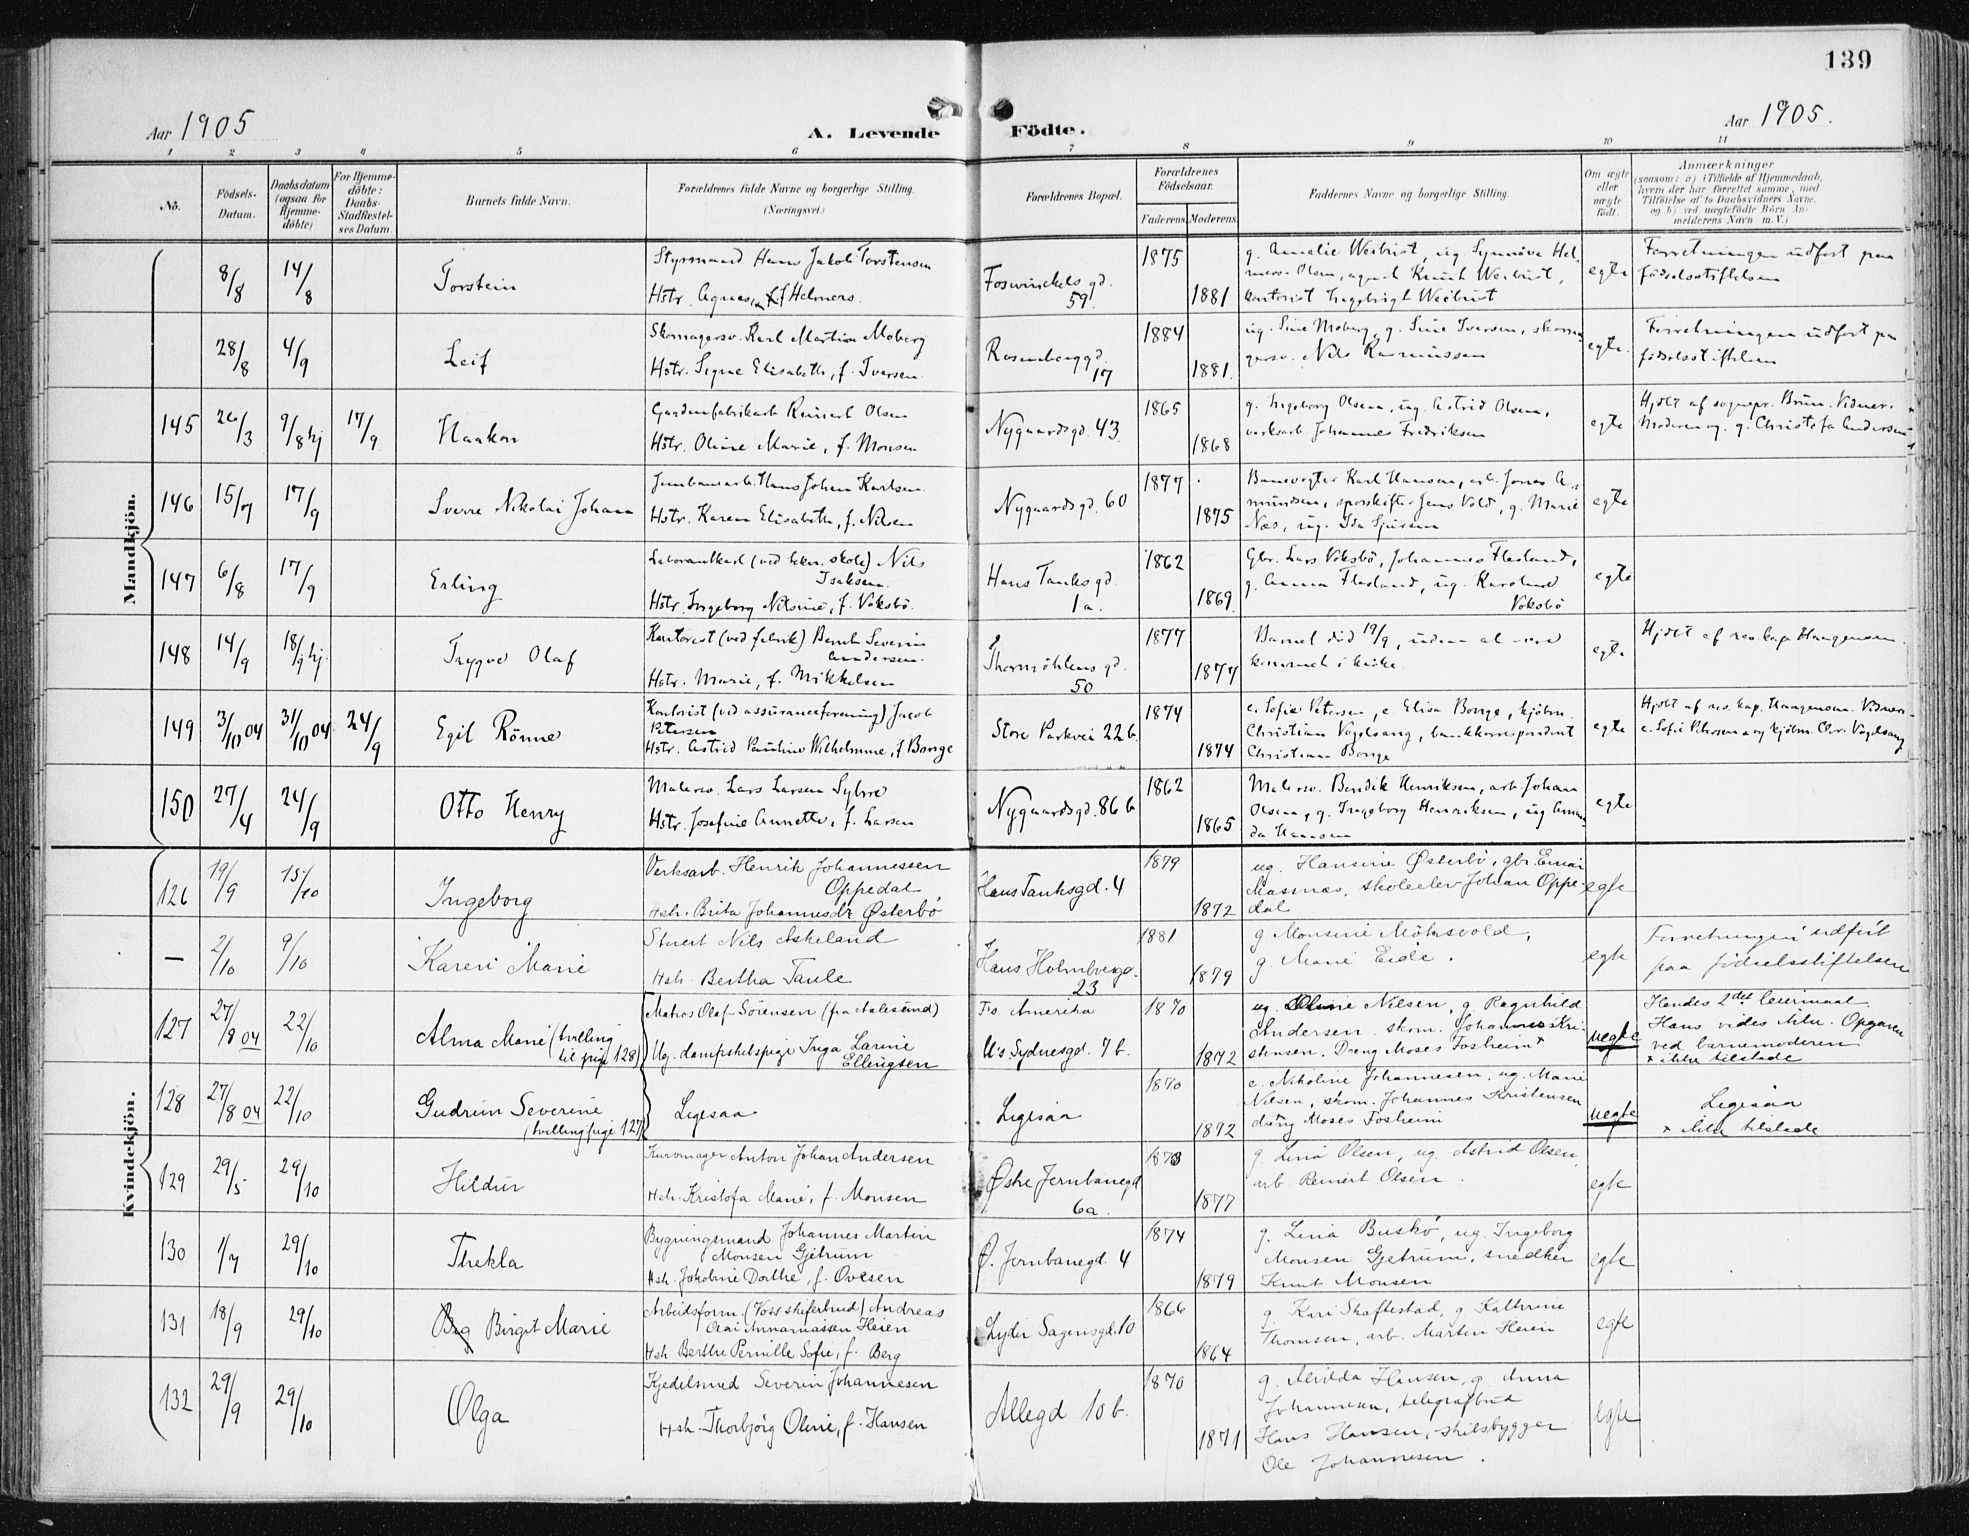 139
Aar 1905
A. Levende Födte.
Aar 1905.
1 2 3 4 5 6 7 8 9 10 11
No.
Födsels-Datum.
Daabsdatum (ogsaa for Hjemme-döbte)
For Hjemme-döbte: Daabs-Stadfæstel-ses Datum.
Barnets fulde Navn.
Forældrenes fulde Navne og borgerlige Stilling.
(Næringsvei.)
Forældrenes Bopæl.
Forældrenes Födselsaar.
Faderens. Moderens.
Faddernes Navne og borgerlige Stilling.
Om ægte eller uægte födt.
Anmærkninger
(saasom: a) i Tilfælde af Hjemmedaab,
hvem der har forrettet samme, med
Tilföielse af to Daabsvidners Navne,
og b) ved uægtefödte Börn An-
melderens Navn m. V.)
Mandkjön.
8/8 14/8 Torstein
Styrmand Hans Jakob Torstensen
Hstr. Agnes, f. Helmers.
Foswinckels gd. 59.
1875 1881
g. Amalie Weibust, ug. Synnöva Hel-
mers Olsen, agent Knut Weibust,
kontorist Ingebrigt Weibust
egte
Forretningen udfört paa
födselsstiftelsen
28/8 4/9 Leif
Skomagersv. Karl Martin Moberg
Hstr. Signe Elisabeth, f. Iversen.
Rosenberggd. 17
1884 1881.
ug. Sine Moberg, g. Sine Iversen, skoma-
gersv. Nils Rasmussen
egte.
Forretningen udfört paa
födselsstiftelsen
145 26/3 9/8 hj 17/9 Haakon
Reinert Olsen
Hstr. Oline Marie, f. Monsen
Nygaardsgd. 43.
1865 1868
g. Ingeborg Olsen, ug. Astrid Olsen,
verksarb. Johannes Fredriksen
egte
Hjdbt af sognepr. Brun. Vidner:
Moderen og g. Christofa Andersen
146 15/7 17/9 Sverre Nikolai Johan
Jernbanearb. Hans Johan Karlsen
Hstr. Karen Elisabeth, f. Nilsen
Nygaardsgd. 60
1877 1875
Banevogter Karl Hansen, arb. Jonas A-
mundsen, sporskifter Jens Vold, g. Marie
Næs, ug. Ida Sjursen
egte
147 6/8 17/9 Erling
Laborantkarl (ved tekn. skole) Nils
Isaksen.
Hstr. Ingeborg Nilsine, f. Voksbö.
Hans Tanks gd. 1a.
1862 1869.
Gbr. Lars Voksbö, Johannes Flesland,
g. Anna Flesland, ug. Karoline
Voksbö
egte
148 14/9 18/9 hj. Trygve Olaf
Kontorist (ved fabrik) Bernh. Severin
Andersen.
Hstr. Marie, f. Mikkelsen
Thormöhlens gd. 50
1877 1877
Barnet död 19/9, uden at være
kommet i kirke.
egte
Hjdbt af res. kap. Haagensen.
149 3/10 04 31/10 04 24/9 Egil Rönne
Kontorist (ved assuranceforening) Jacob
Petersen
Hstr. Astrid Pauline Wilhelmine, f. Borge
Store Parkvei 22b.
1874 1874
e. Sofie Petersen, e. Elisa Borge, kjöbm.
Christian Vogelsang, bankkorrespondent
Christian Borge
egte
Hjdbt af res. kap. Haagensen. Vidner:
e. Sofie Petersen og kjöbm. Chr. Vogelsang
150 27/4 24/9 Otto Henry
Malersv. Lars Larsen Sylvre
Hstr. Josefine Annette, f. Larsen
Nygaardsgd. 86 b
1862 1865
Malersv. Bendik Henriksen, arb. Johan
Olsen, g. Ingeborg Henriksen, ug. Aman-
da Hansen
egte
Kvindekjön.
126 19/9 15/10 Ingeborg
Verksarb. Henrik Johannessen
Oppedal
Hstr. Brita Johannesdr Österbö
Hans Tanksgd. 4
1879 1872
ug. Hansine Österbö, gbr. Einar
Masnæs, skoleelev Johan Oppe-
dal
egte
— 2/10 9/10 Karen Marie
Stuert Nils Askeland
Hstr. Bertha Taule
Hans Holmboegd. 23
1881 1879
g Monsine Möksvold,
g Marie Eide.
egte
Forretningen udfört
paa födselsstiftelsen
127 27/8 04 22/10 Alma Marie (tvilling
til pige 128)
Matros Olaf Sörensen (fra Aalesund)
Ug. dampskibspige Inga Larine
Ellingsen
Fs Amerika
M's Sydnesgd. 7 b.
1870 1872
ug. Oline Nilsen, g Ragnhild
Andersen. skom. Johannes Kri-
stensen. Dreng Moses Fosheim x
uegte
Hendes 2det leiermaal
Hans vides ikke. Opgaven
ved barnemoderen
x ikke tilstede
128 27/8 04 22/10 Gudrun Severine
(tvilling pige 127)
Ligesaa
Ligesaa
1870 1872
e. Nikoline Johannesen. ug. Marie
Nilsen, skom. Johannes Kristensen
dreng Moses Fosheim
uegte
Ligesaa
x ikke tilstede
129 29/5 29/10 Hildur
Kurvmager Anton Johan Andersen
Hstr. Kristofa Marie, f. Monsen
Östre Jernbanegd 6a.
1873 1877
g. Lina Olsen, ug. Astrid Olsen,
arb. Reinert Olsen.
egte
130 1/7 29/10 Thekla
Bygningsmand Johannes Martin
Monsen Gjetrum
Hstr. Jakobine Dorthe, f. Ovesen
Ö. Jernbanegd. 4
1874 1879
g. Lina Buskö, ug. Ingeborg
Monsen Gjetrum, snedker
Knut Monsen
egte
131 18/9 29/10 Birgit Marie
Arbeidsform. (Voss skiferbrud) Andreas
Olai Annanias­sen Heien
Hstr Berthe Pernille Sofie, f. Berg
Lyder Sagensgd. 10
1866 1864
g Kari Skaftestad, g Kathrine
Thomsen, arb. Martin Heien
egte
132 29/9 29/10 Olga
Kjedelsmed Severin Johannesen
Hstr. Thorbjörg Oline, f. Hansen
Allegd 10 b.
1870 1871
g. Alvilda Hansen, g Anna
Johannesen, telegrafbud
Hans Hansen, skibsbygger
Ole Johannesen.
egte